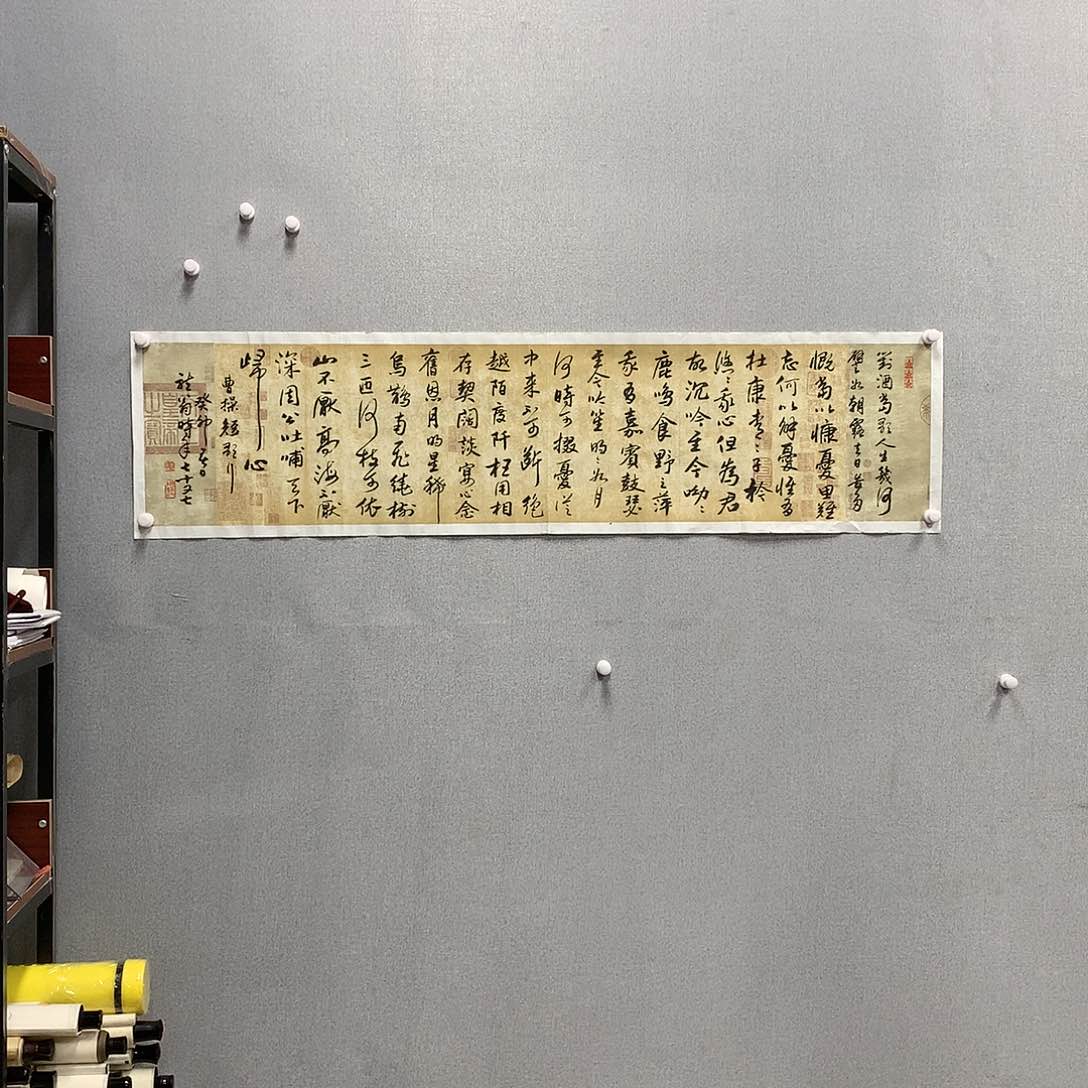 對酒當歌人生幾何
譬如朝露去日苦多
慨當以慷憂思難
忘何以解憂惟有
杜康青〻子衿
悠〻我心但為君
故沉吟至今呦〻
鹿鳴食野之萍
我有嘉賓鼓瑟
笙明〻如月
何時可掇憂從
中來不可斷絕
越陌度阡枉用相
存契闊談宴心念
舊恩月明星稀
烏鵲南飛繞樹
三匝何枝可依
山不厭高海不厭
深周公吐哺天下
歸心
曹操短歌行
癸卯春日
翁時年七十又七